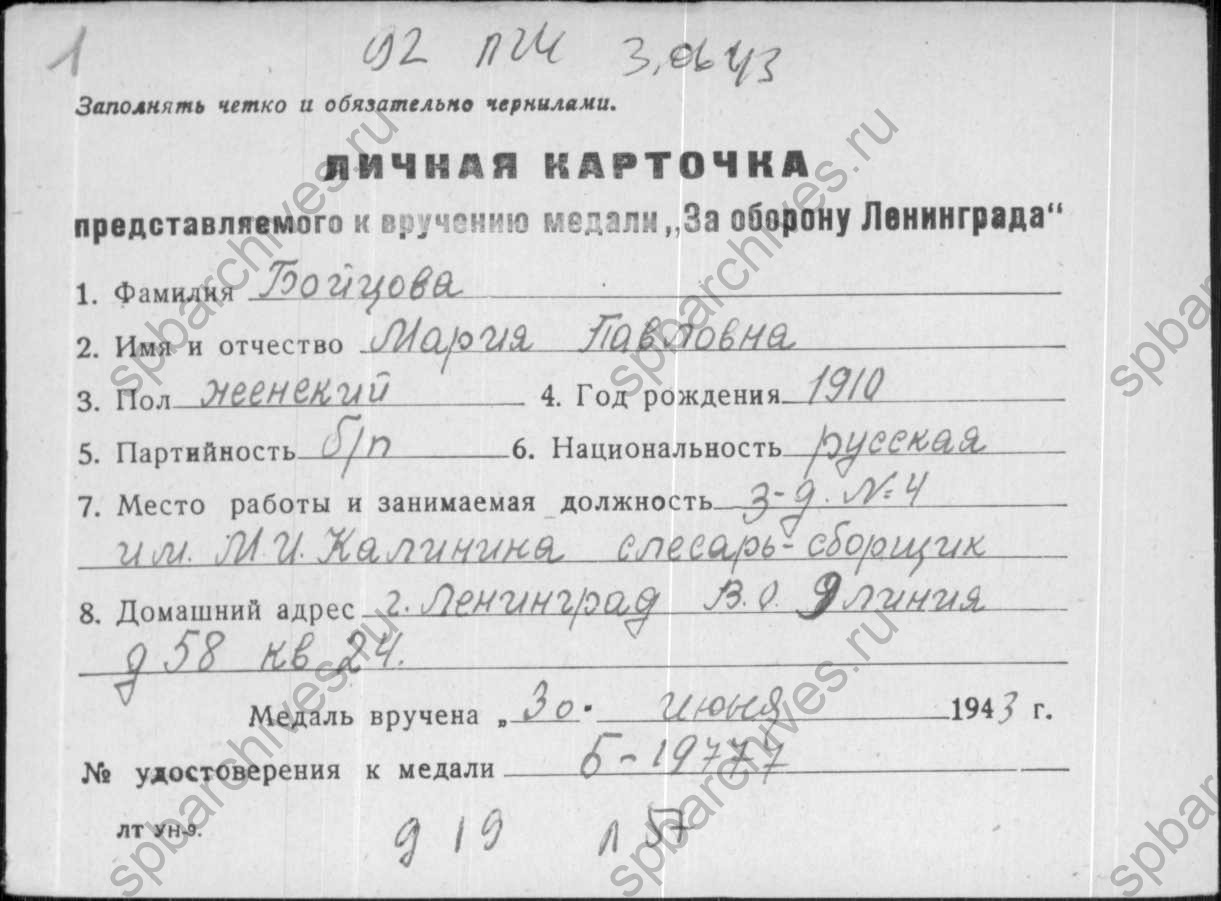 1
Заполнять четко и обязательно чернилами.
ЛИЧНАЯ КАРТОЧКА
представляемого к вручению медали „За оборону Ленинграда“
1. Фамилия Бойцова
2. Имя и отчество Мария Павловна
3. Пол женский 4. Год рождения 1910
5. Партийность б/п 6. Национальность русская
7. Место работы и занимаемая должность З-д. №4
им. М.И. Калинина слесарь-сборщик
8. Домашний адрес г. Ленинград В.О. 9 линия
д 58 кв 24.
Медаль вручена „30. июня 1943 г.
№ удостоверения к медали Б-19777
ЛТ УН-9.
д 19 л 57
spbarchives.ru
spbarchives.ru
spbarchives.ru
spbarchives.ru